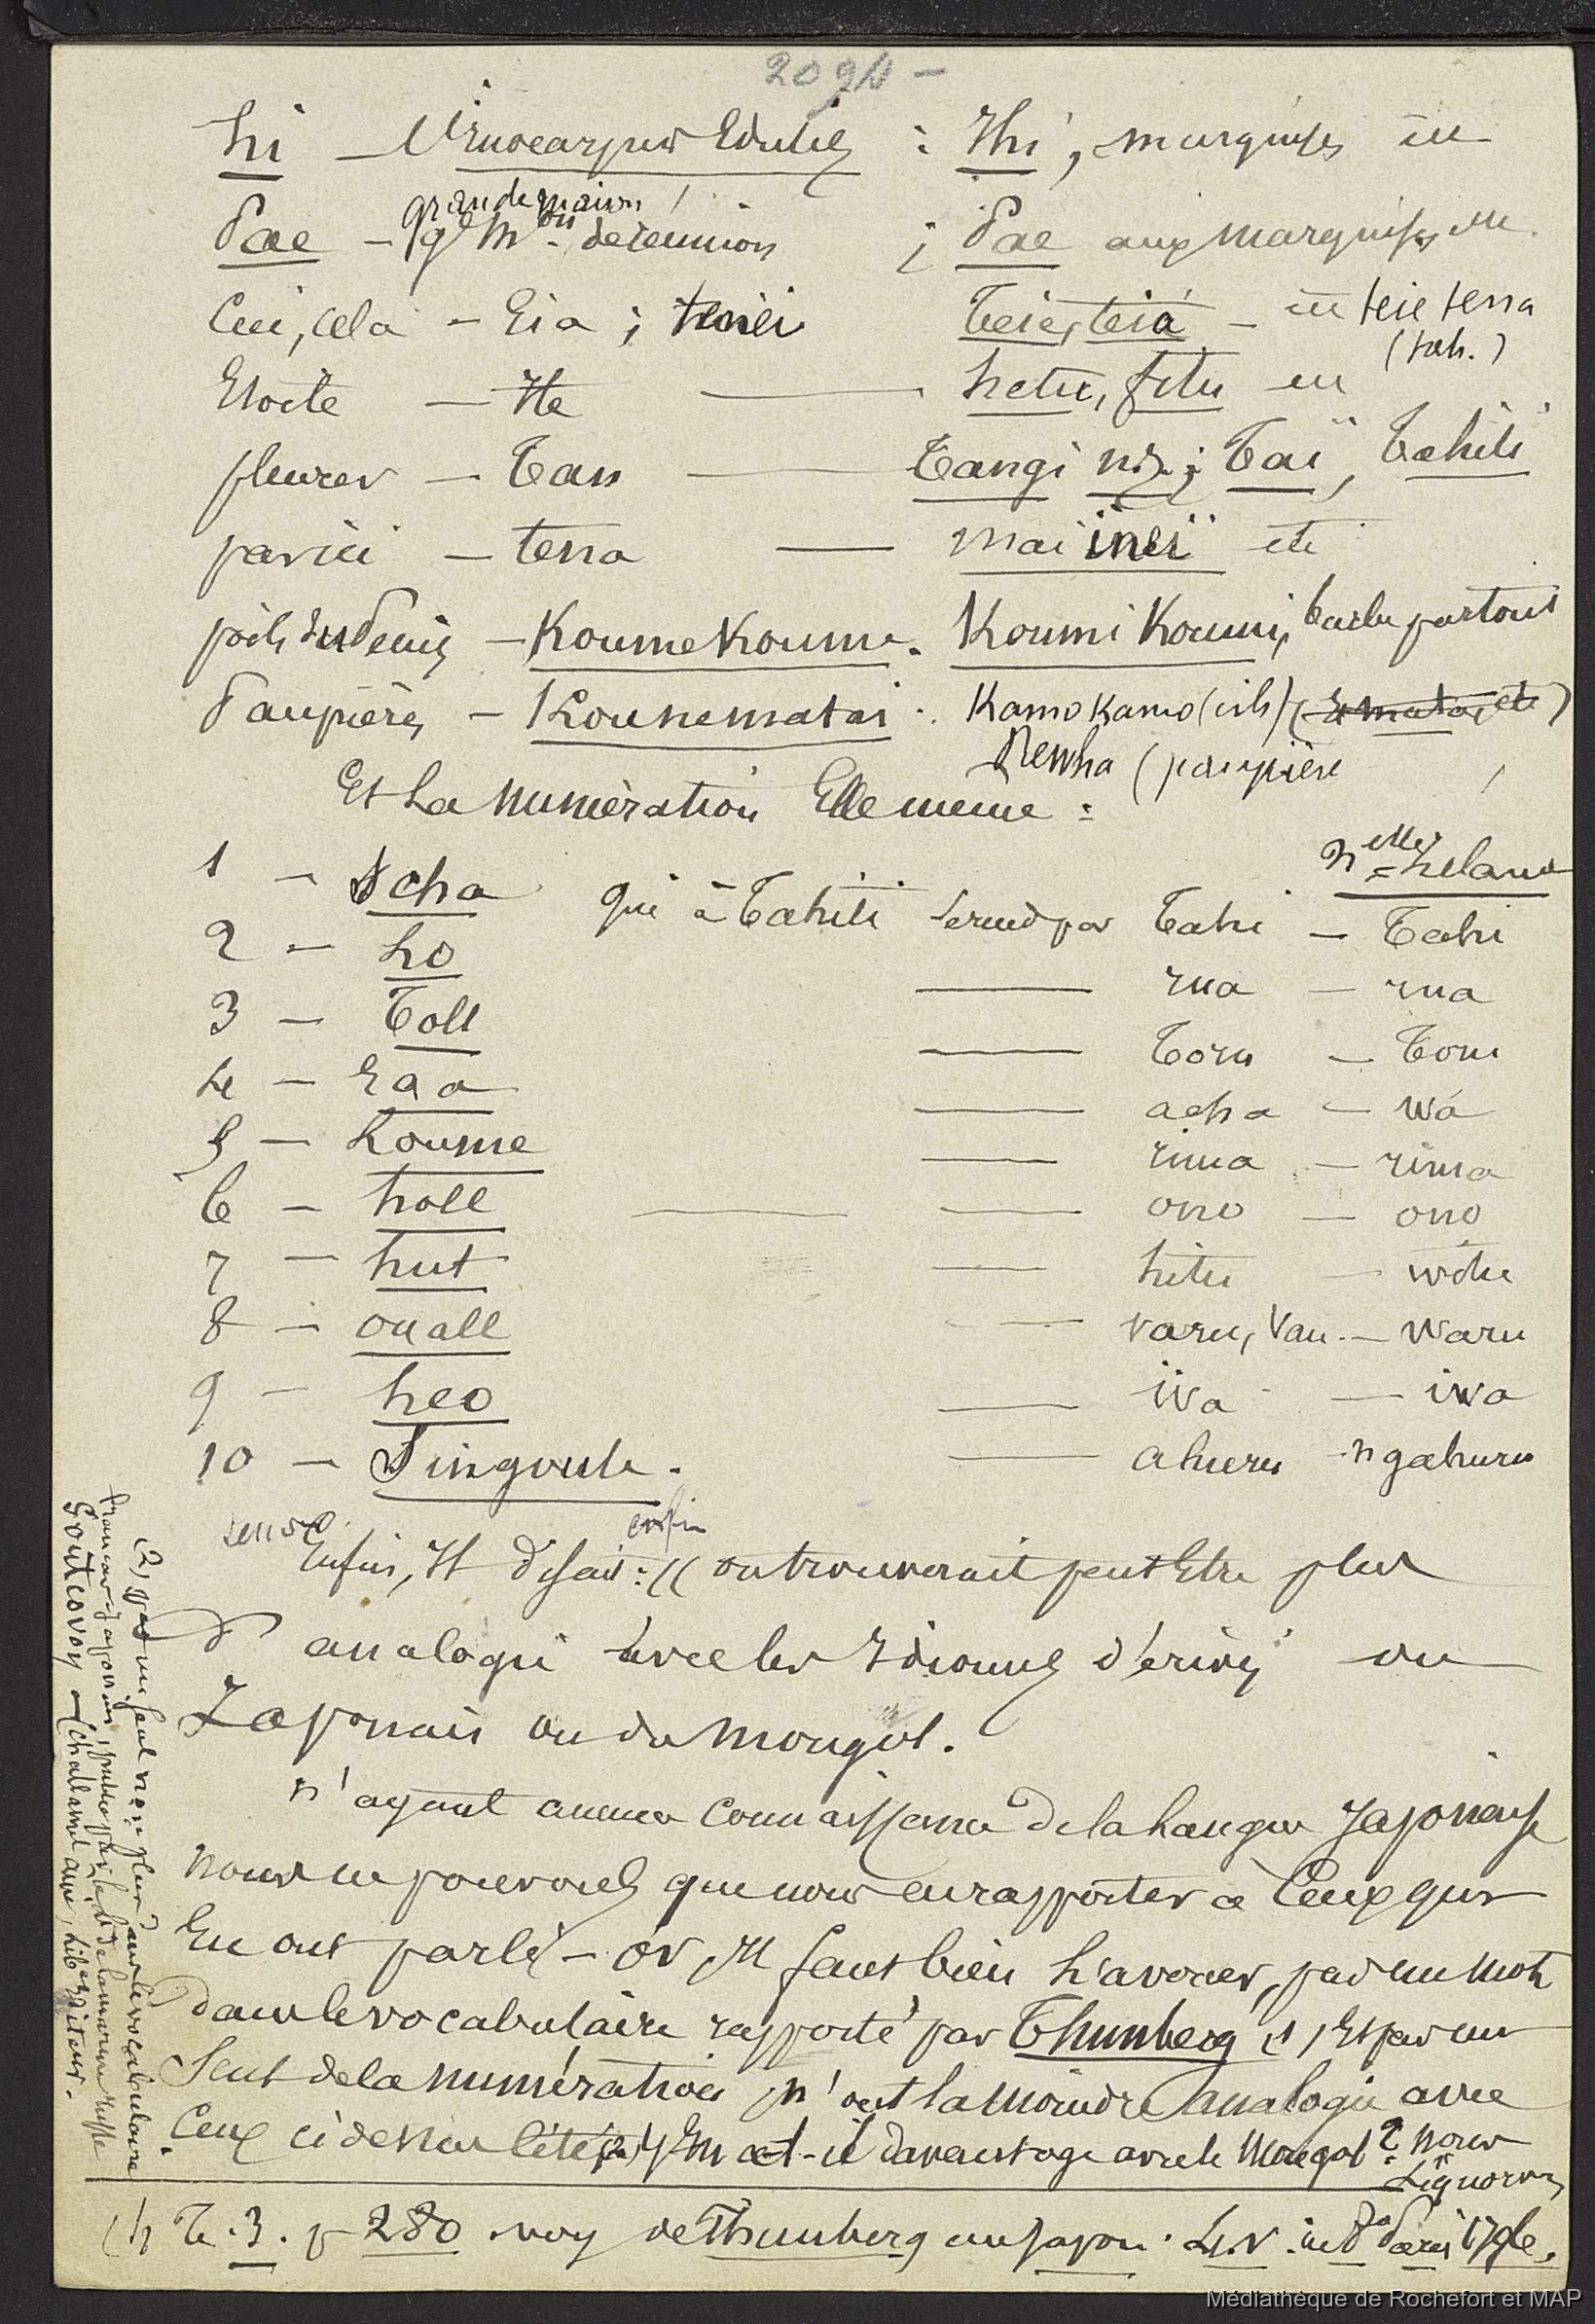 209
hi — edulis : Ihi, marquises
Pae — gde mon de réunion ; Pae aux marquises
grande maison
Ceci, cela — Eia ; Teie, teia — teie tena
(tah.)
Etoile — He — hetu, fetu
pleurer — Tan — Tangi nz. ; Tai, Tahiti
par ici — tena — mai inei
poils du Penis — Koumekoume. Koumi Koumi, barbe partout
Paupières — Kounematai. Kamo kamo (cils)
Rewha (paupière
Et La numération Elle meme :
nelle = Zelande
1 — Scha qui à Tahiti se rend par Tahi — Tahi
2 — ho — rua — rua
3 — Toll — Toru — Toru
4 — Eaa — acha — wa
5 — houme — rima — rima
6 — holl — ono — ono
7 — hut — hitu — witu
8 — ouall — varu, vau — waru
9 — heo — iva — iwa
10 — Singoule. — ahuru — ngahuru
Enfin, Il disait : « on trouverait peut Etre plus
enfin
d'analogie avec les Idiomes dérivés du
Japonais ou du mongol.
n'ayant aucune connaissance de la Langue Japonaise
nous ne pouvons que nous en rapporter à Ceux qui
En ont parlé — or Il faut bien L'avouer, pas un mot
dans le vocabulaire rapporté par Thunberg (1) Et pas un
Seul de la numération n'ont la moindre analogie avec
Ceux ci dessus (2) En est-il davantage avec le Mongol ? nous
L'ignorons
(1) T. 3. p 280. voy de Thunberg au Japon. in 8° Paris 1796.
(2) pas un seul non plus dans le vocabulaire
français japonais, publié par le de la marine russe
Goutcovoy — (Challamel ainé, lib Editeur.
Médiathèque de Rochefort et MAP